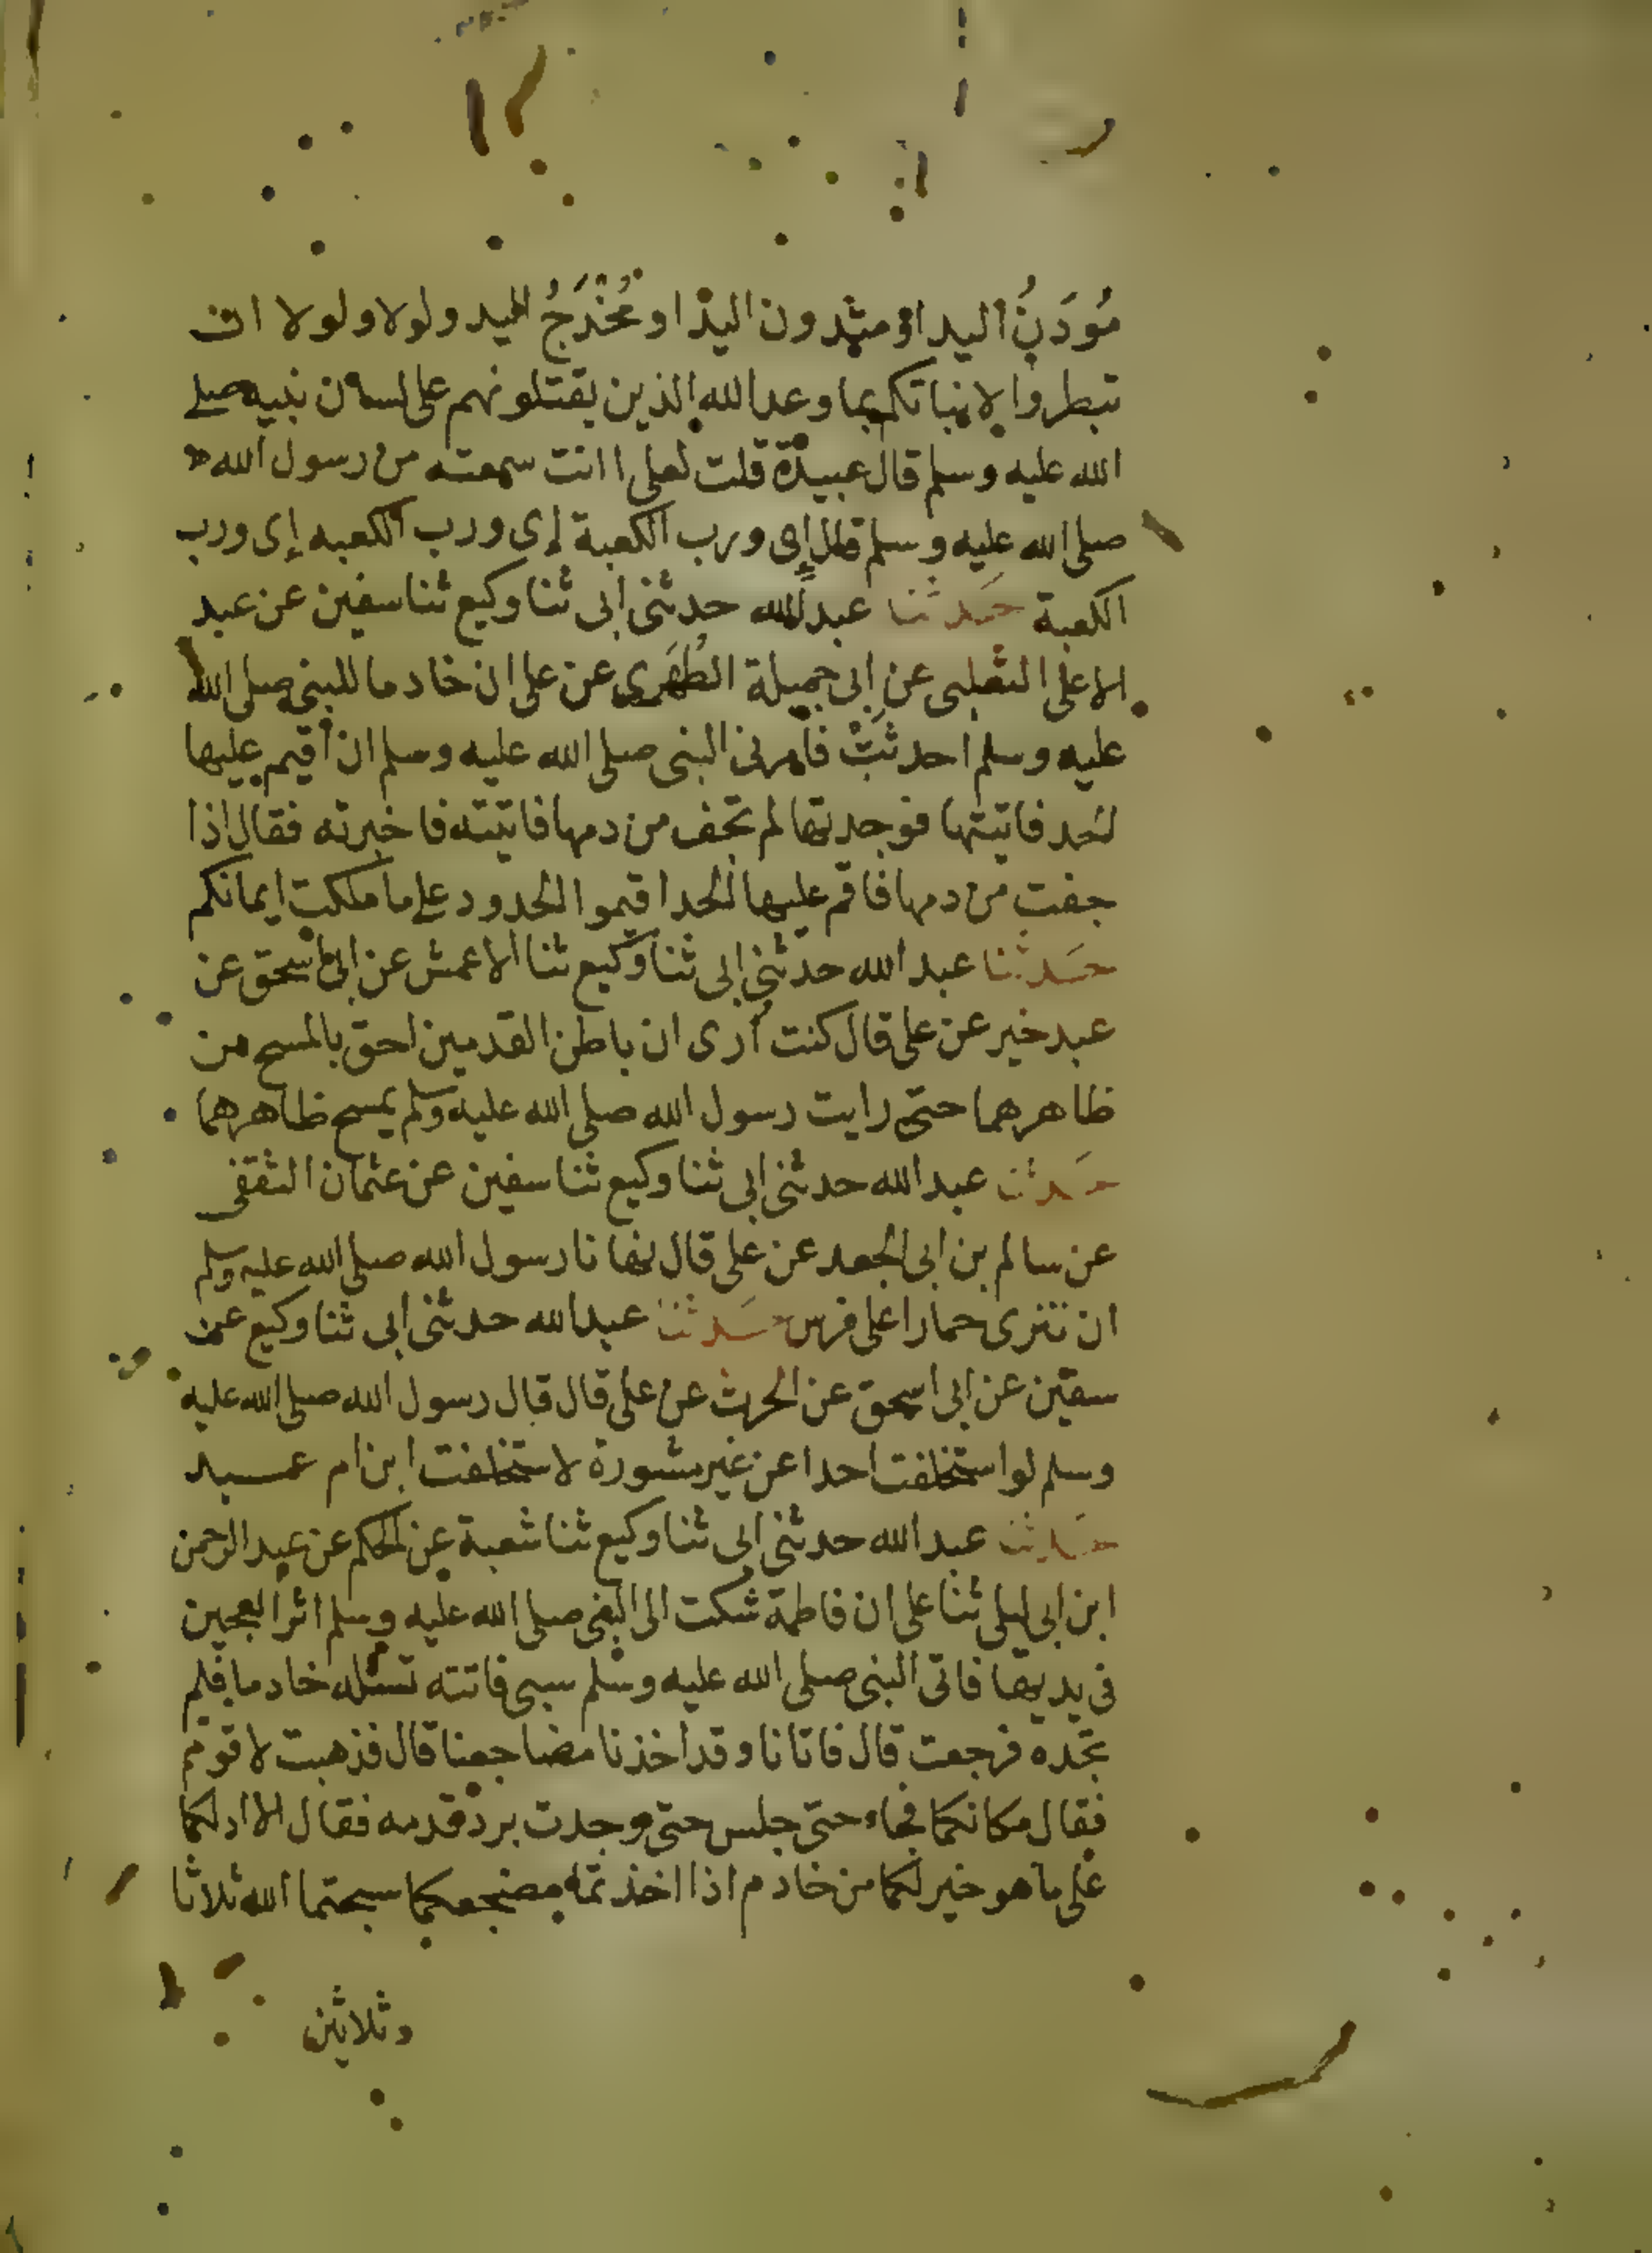 مُودَنُ اليد او مثدون اليد او مُخْدَجُ اليد ولولا ولولا ان
تبطروا لانباتكم بما وعد الله الذين يقتلونهم على لسان نبيه صلى
الله عليه وسلم قال عبيدة قلت لعلي اانت سمعته من رسول الله
صلى الله عليه وسلم قال إى ورب الكعبة إى ورب الكعبه إى ورب
الكعبة حدثنا عبد الله حدثنى ابى ثنا وكيع ثنا سفين عن عبد
الاعلى الثعلبى عن ابى جميلة الطُهَرى عن على ان خادما للنبى صلى الله
عليه وسلم احدثَتْ فأمرنى النبى صلى الله عليه وسلم ان أقيم عليها
الحد فاتيتها فوجدتها لم تجف من دمها فاتيته فاخبرته فقال اذا
جفت من دمها فاقم عليها الحد اقيموا الحدود على ما ملكت ايمانكم
حدثنا عبد الله حدثنى ابى ثنا وكيع ثنا الاعمش عن ابى اسحق عن
عبد خير عن على قال كنت أُرى ان باطن القدمين احق بالمسح من
ظاهرهما حتى رايت رسول الله صلى الله عليه وسلم يمسح ظاهرهما
حدثنا عبد الله حدثنى ابى ثنا وكيع ثنا سفين عن عثمان الثقفى
عن سالم بن ابى الجعد عن على قال نهانا رسول الله صلى الله عليه وسلم
ان ننزى حمارا على فرس حدثنا عبد الله حدثنى ابى ثنا وكيع عن
سفين عن ابى اسحق عن الحرث عن على قال قال رسول الله صلى الله عليه
وسلم لو استخلفت احدا عن غير مشورة لاستخلفت ابن ام عبد
حدثنا عبد الله حدثنى ابى ثنا وكيع ثنا شعبة عن الحكم عن عبد الرحمن
ابن ابى ليلى ثنا على ان فاطمة شكت الى النبى صلى الله عليه وسلم اثر العجين
فى يديها فاتى النبى صلى الله عليه وسلم سبى فاتته تسئله خادما فلم
تجده فرجعت قال فاتانا وقد اخذنا مضاجعنا قال فذهبت لاقوم
فقال مكانكما فجاء حتى جلس حتى وجدت برد قدمه فقال الا ادلكما
على ما هو خير لكما من خادم اذا اخذتما مضجعكما سبحتما الله ثلاثا
وثلاثين